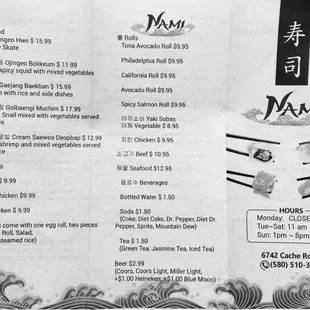 od
ngeo Hwe $ 15.99
Skate
Ojingeo Bokkeum $ 11.99
spicy squid with mixed vegetables
Gaejang Baekban $ 15.99
with rice and side dishes
Golbaengi Muchim $ 17.99
Snail mixed with vegetables served
Cream Saewoo Deopbap $ 12.99
shrimp and mixed vegetables
ce
$9.99
chicken $9.99
chicken $ 9.99
come with one egg roll, two pieces
Roll, Salad,
steamed rice)
NAMI
롤 Rolls
Tuna Avocado Roll $9.95
Philadelphia Roll $9.95
California Roll $9.95
Avocado Roll $9.95
Spicy Salmon Roll $9.95
야끼소바 Yaki Sobas
야채 Vegetable $ 8.95
치킨 Chicken $ 9.95
소고기 Beef $ 10.95
해물 Seafood $12.95
음료수 Beverages
Bottled Water $ 1.50
Soda $1.50
(Coke, Diet Coke, Dr. Pepper, Diet Dr.
Pepper, Sprite, Mountain Dew)
Tea $ 1.50
(Green Tea, Jasmine Tea, Iced Tea)
Beer $2.99
(Coors, Coors Light, Miller Light,
+$1.00 Heineken, +$1.00 Blue Moon)
寿司
NAM
HOURS
Monday: CLOSE
Tue~Sat: 11 am
Sun: 1pm ~ 8pm
6742 Cache Ro
(580) 510-3